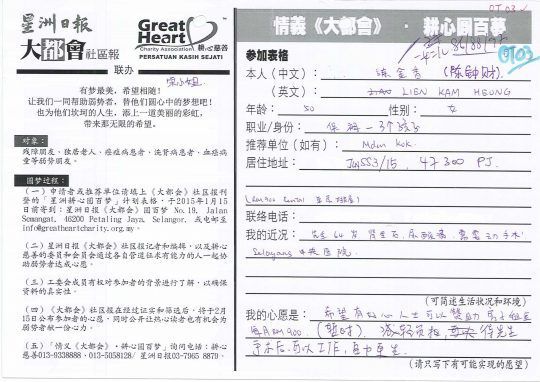 星洲日报
大都會 社區報
Great Heart
Charity Association 耕心慈善
PERSATUAN KASIH SEJATI
联办
有梦最美，希望相随！
让我们一同帮助弱势者，替他们圆心中的梦想吧！
也为他们坎坷的人生，添上一道美丽的彩虹，
带来那无限的希望。
对象：
残障朋友、独居老人、癌症病患者、洗肾病患者、血癌病
童等弱势朋友。
圆梦过程：
（一）申请者或推荐单位请填上《大都会》社区报刊
登的「星洲耕心圆百梦」计划表格，于2015年1月15
日前寄到：星洲日报《大都会》圆百梦 No.19, Jalan
Semangat, 46200 Petaling Jaya, Selangor, 或电邮至
info@greatheartcharity.org.my
（二）《大都会》社区报记者和编辑，以及耕心
慈善的委员和会员会通过各自管道征求有能力的人一起协
助弱势者达成心愿。
（三）工委会成员有权对参加者的背景进行了解，以确
保资料的真实性。
（四）《大都会》社区报在经过证实和筛选后，将于2月
15日公布参加者的心愿，同时公开让热心读者也有机会为
弱势者献一份心力。
（五）「情义《大都会》·耕心圆百梦」询问电话：耕心
慈善013-9338888、013-5058128/ 星洲日报03-7965 8879。
OT 03
情義《大都會》·耕心圓百夢
OT 02
参加表格
本人（中文）：
（英文）： LIEN KAM HEUNG
年龄： 50 性别： 女
职业/身份：
推荐单位（如有）： Mdm Kok
居住地址： 47300 PJ.
联络电话：
我的近况：
Selayang 中央医院。
（可简述生活状况和环境）
我的心愿是： 希望有好心人士可以赞助
每月RM900
手术后，可以工作，自力更生。
（请只写下有可能实现的愿望）